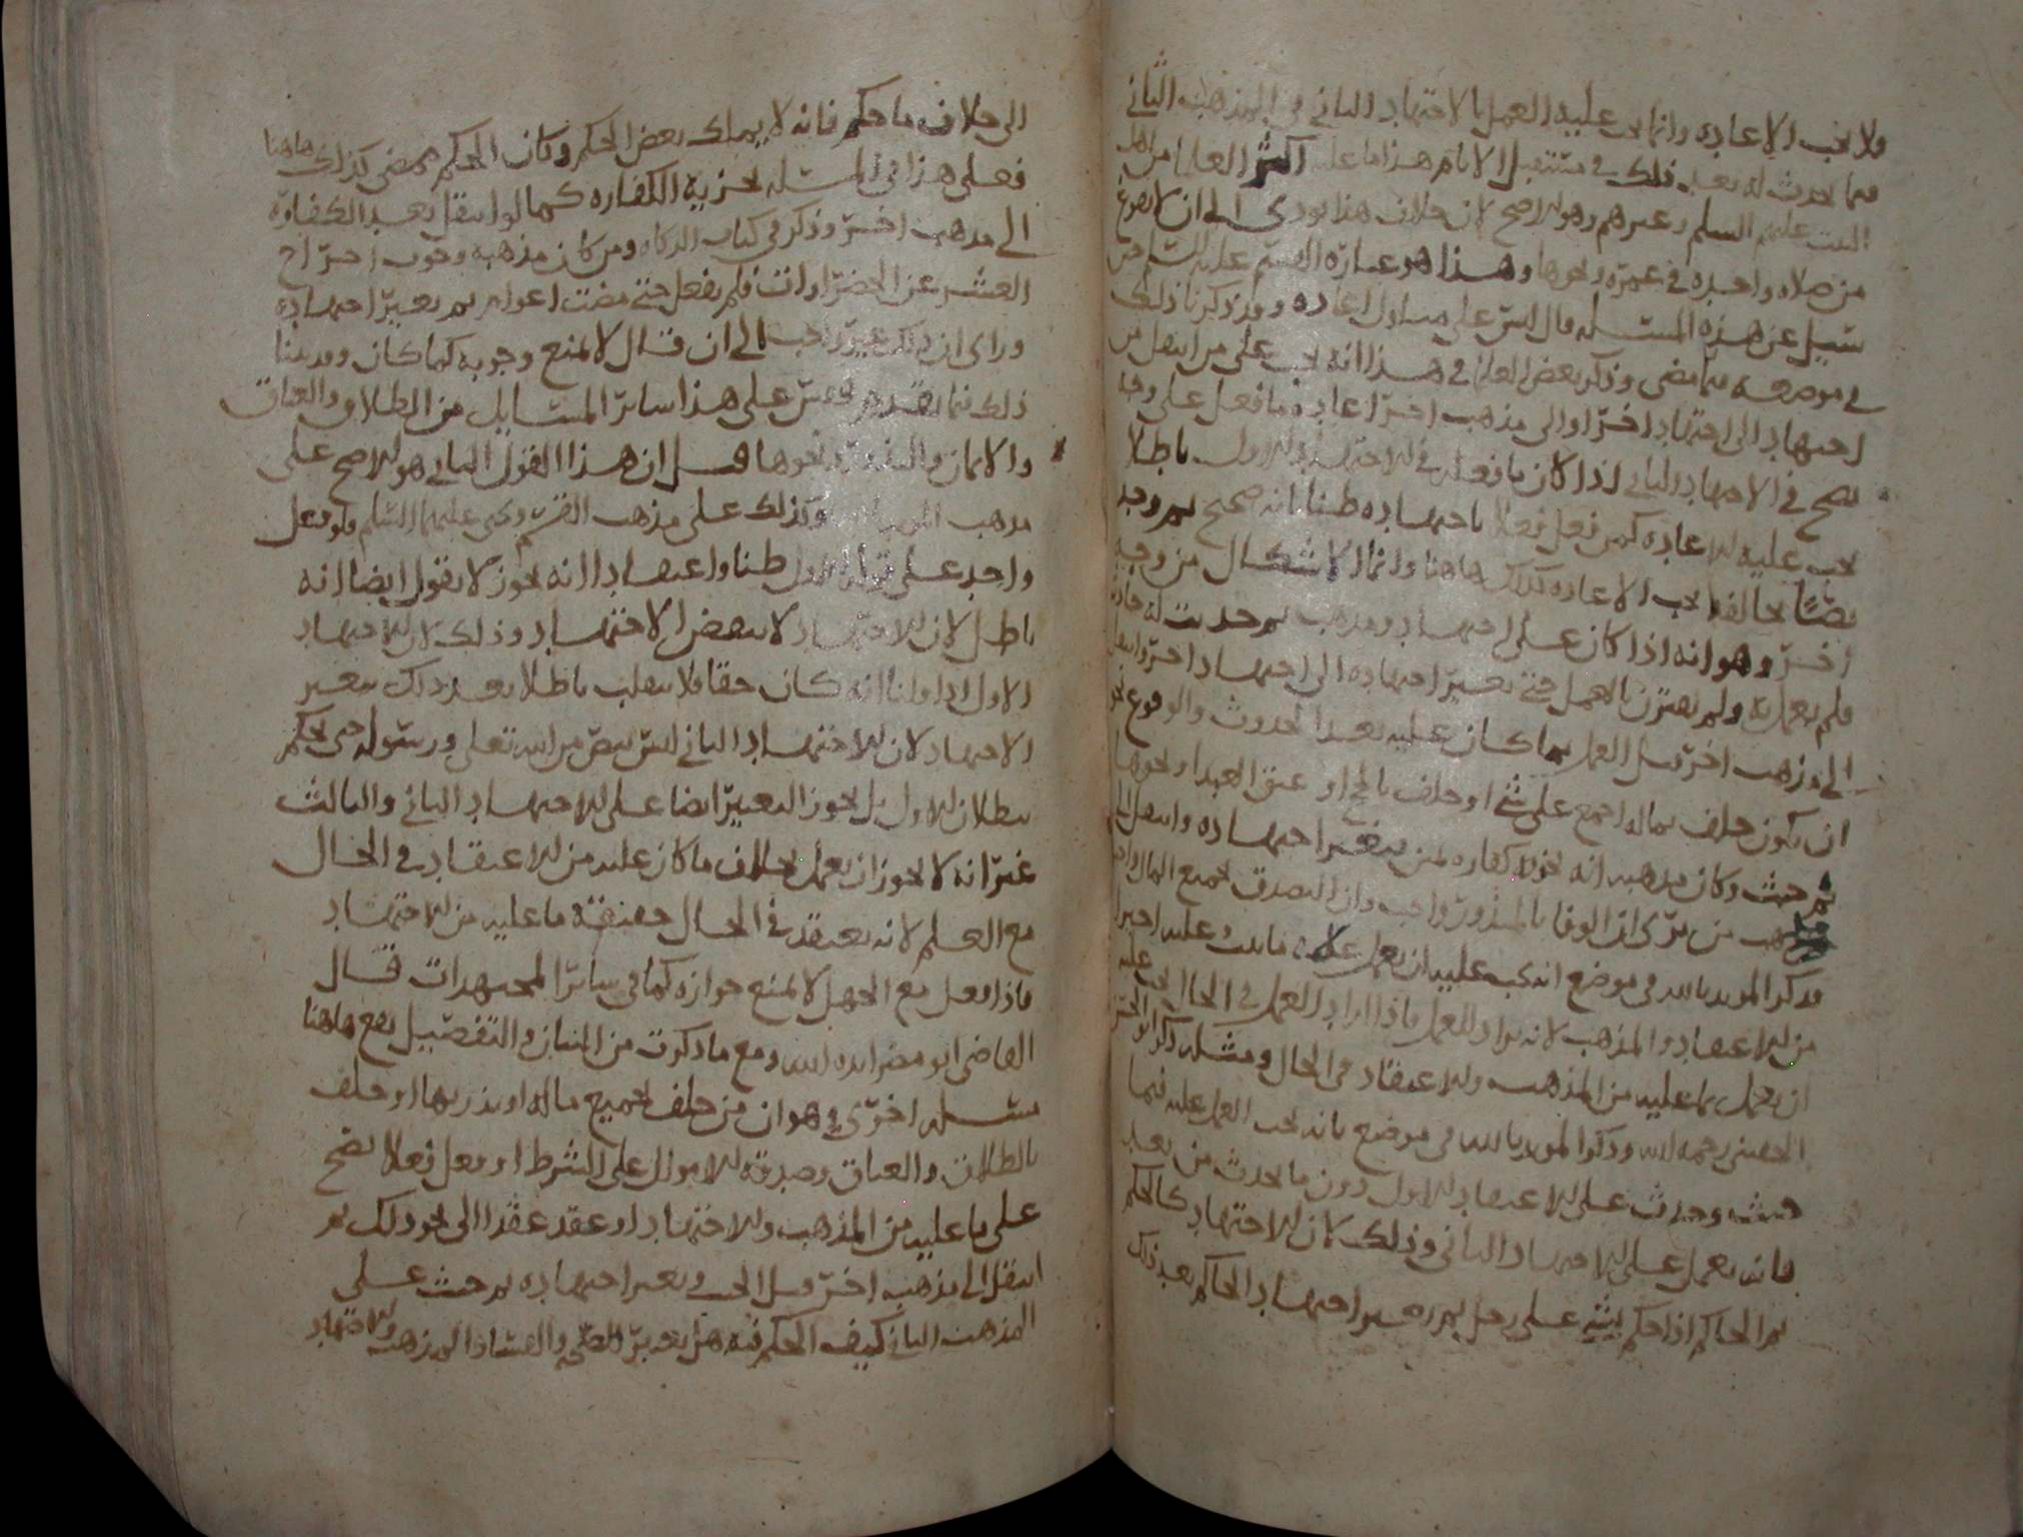 ولا يجب الاعاده وانما يجب عليه العمل بالاجتهاد الثاني في المذهب الثاني
فيما يحدث له بعد ذلك في مستقبل الايام هذا ما عليه اكثر العلماء من اهل
البيت عليهم السلم وغيرهم وهو الاصح لان خلاف هذا يودي الى ان لا يفرغ
من صلاه واحده في عمره ونحوها وهذا هو عبارة القسم عليه السلم حين
سئل عن هذه المسئله قال ليس على اعاده وقد ذكرنا ذلك
في موضعه فيما مضى وذكر بعض العلما في هذا انه يجب على من انتقل من
اجتهاد الى اجتهاد اخر او الى مذهب اخر اعاده ما فعل على وجه
يصح في الاجتهاد الثاني اذا كان ما فعله في الاجتهاد الاول باطلا
يجب عليه الاعاده كمن فعل فعلا باجتهاده ظنا انه صحيح ثم وجد
نصا بخالفه يجب الاعاده كذلك هاهنا وانما الاشكال من وجه
اخر وهو انه اذا كان على اجتهاد ومذهب ثم حدثت له حادثه
فلم يعمل به ولم يقترن بالعمل حتى تغير اجتهاده الى اجتهاد اخر وانتقل
الى مذهب اخر قبل العمل بما كان عليه بعد الحدوث والوقوع نحو
ان يكون حلف بماله اجمع على شي او حلف بالحج او عتق العبد او نحوها
ثم حنث وكان مذهبه انه يجزيه كفاره يمين فتغير اجتهاده وانتقل الى
مذهب من يرى ان الوفا بالمنذور واجب وان التصدق بجميع المال واجب
فذكر المويد بالله في موضع انه يجب عليه ان يعمل على ما ثبت عليه اخيرا
من الاعتقاد والمذهب لانه يراد للعمل فاذا اراد العمل في الحال يجب عليه
ان يعمل بما عليه من المذهب والاعتقاد في الحال ومسئله ذكر ابو الحسن
الحقيني رحمه الله وذكر المويد بالله في موضع بانه يجب العمل عليه فيما
حنث وحدث على الاعتقاد الاول دون ما يحدث من بعد
فانه يعمل على الاجتهاد الثاني وذلك لان الاجتهاد كالحكم
ثم الحاكم اذا حكم بشي على رجل ثم تغير اجتهاد الحاكم بعد ذلك
الى خلاف ما حكم فانه لا يملك نقض الحكم وكان الحكم يمضي كذلك هاهنا
فعلى هذا في المسئله يجزيه الكفاره كما لو انتقل بعد الكفارة
الى مذهب اخر وذكر في كتاب الزكاه ومن كان مذهبه وجوب اخراج
العشر عن الخضراوات فلم يفعل حتى مضت اعوام ثم تغير اجتهاده
وراى ان ذلك غير واجب الى ان قال لا لمنع وجوبه كما كان وقد بينا
ذلك فيما تقدم وقس على هذا سائر المسايل من الطلاق والعتاق
والايمان والنذور ونحوها قيل ان هذا القول الثاني هو الاصح على
مذهب المويد بالله وكذلك على مذهب القسم ويحيى عليهما السلم فلو فعل
واحد على قوله الاول ظنا واعتقادا انه يجوز لا يقول ايضا انه
باطل لان الاجتهاد لا ينقض الاجتهاد وذلك لان الاجتهاد
الاول اذا قلنا انه كان حقا فلا ينقلب باطلا بعد ذلك بتغير
الاجتهاد لان الاجتهاد الثاني ليس بنص من الله تعالى ورسوله حتى يحكم
ببطلان الاول بل يجوز التغير ايضا على الاجتهاد الثاني والثالث
غير انه لا يجوز ان يعمل بخلاف ما كان عليه من الاعتقاد في الحال
مع العلم لانه يعتقد في الحال حقيقة ما عليه من الاجتهاد
فاذا فعل مع الجهل لا لمنع جوازه كما في سائر المجتهدات قال
القاضي ابو مضر ايده الله ومع ما ذكرت من البيان والتفصيل يقع هاهنا
مسئله اخرى وهو ان من حلف بجميع ماله او نذر بها او حلف
بالطلاق والعتاق وصدقه الاموال على الشرط او فعل فعلا يصح
على ما عليه من المذهب والاجتهاد او عقد عقدا الى نحو ذلك ثم
انتقل الى مذهب اخر قبل الحنث وتغير اجتهاده ثم حنث على
المذهب الثاني كيف الحكم فيه هل يعتبر الصحه والفساد المذهب والاجتهاد